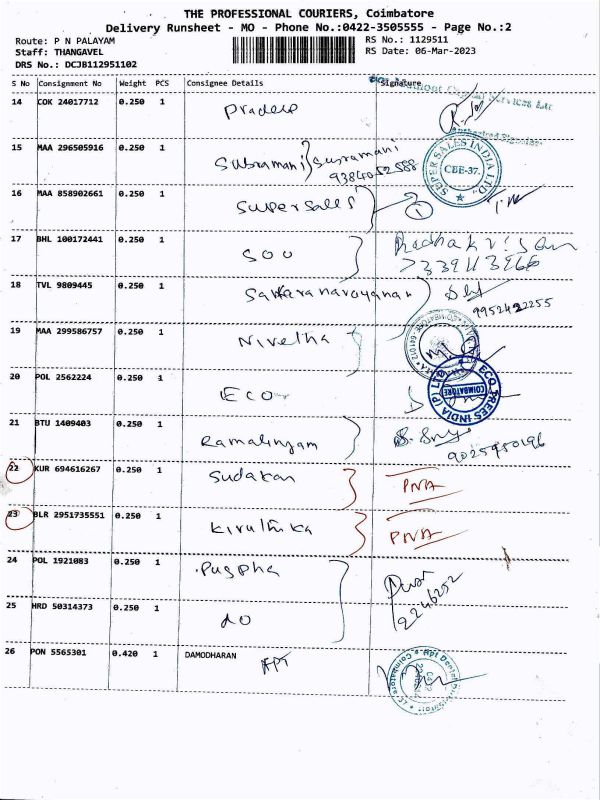 THE PROFESSIONAL COURIERS, Coimbatore
Delivery Runsheet - MO - Phone No.:0422-3505555 - Page No.:2
Route: P N PALAYAM
RS No.: 1129511
Staff: THANGAVEL
RS Date: 06-Mar-2023
DRS No.: DCJB112951102
S No Consignment No Weight PCS Consignee Details Signature
14 COK 24017712 0.250 1 Pradeep
15 MAA 296505916 0.250 1 Subramani Subramani
9384052588
SUPER SALES INDIA LTD.
CBE-37.
16 MAA 858902661 0.250 1 Super Sales 1
17 BHL 100172441 0.250 1 Radhakrisan
18 TVL 9809445 0.250 1 Sankaranarayanan
9952422255
19 MAA 299586757 0.250 1 Nivetha
20 POL 2562224 0.250 1 ECO
ECO TREES INDIA (P) LTD
COIMBATORE
21 BTU 1409403 0.250 1 Ramalingam
9025950196
22 KUR 694616267 0.250 1 Sudakan PNA
23 BLR 2951735551 0.250 1 Kiruthika PNA
24 POL 1921083 0.250 1 Puspha
25 HRD 50314373 0.250 1 do
26 PON 5565301 0.420 1 DAMODHARAN